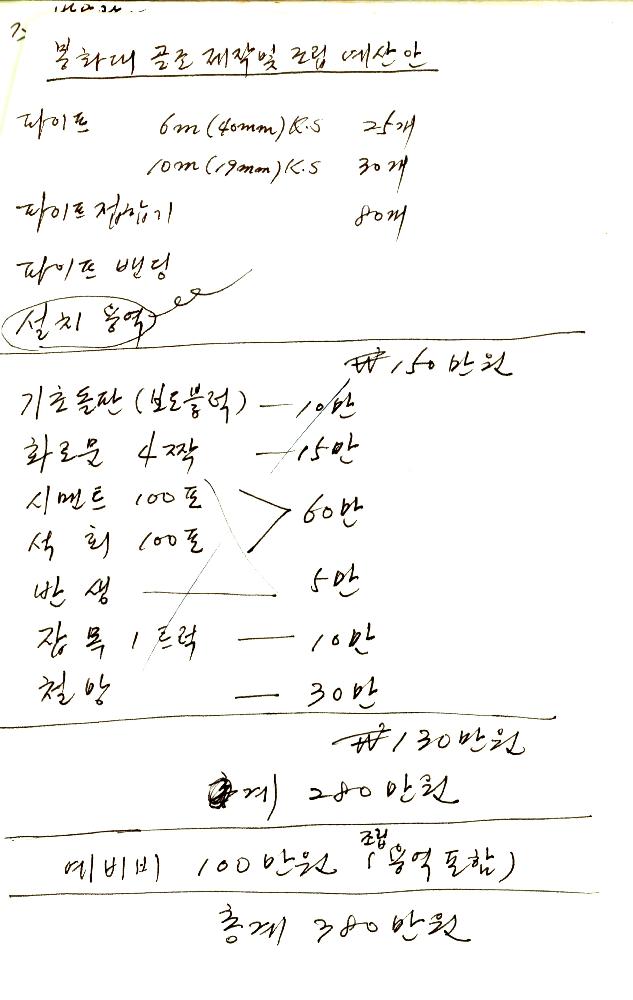 봉화대 골조 제작및 조립 예산안
파이프 6m(40mm)K.S 25개
10m(19mm)K.S 30개
파이프 접합기 80개
파이프 밴딩
설치 용역
₩150만원
기초돌판(보도블럭) — 10만
화로문 4짝 — 15만
시멘트 100포
석 회 100포 > 60만
반 생 — 5만
잡 목 1트럭 — 10만
철 망 — 30만
₩130만원
계) 280만원
예비비 100만원 (조립 용역포함)
총계 380만원